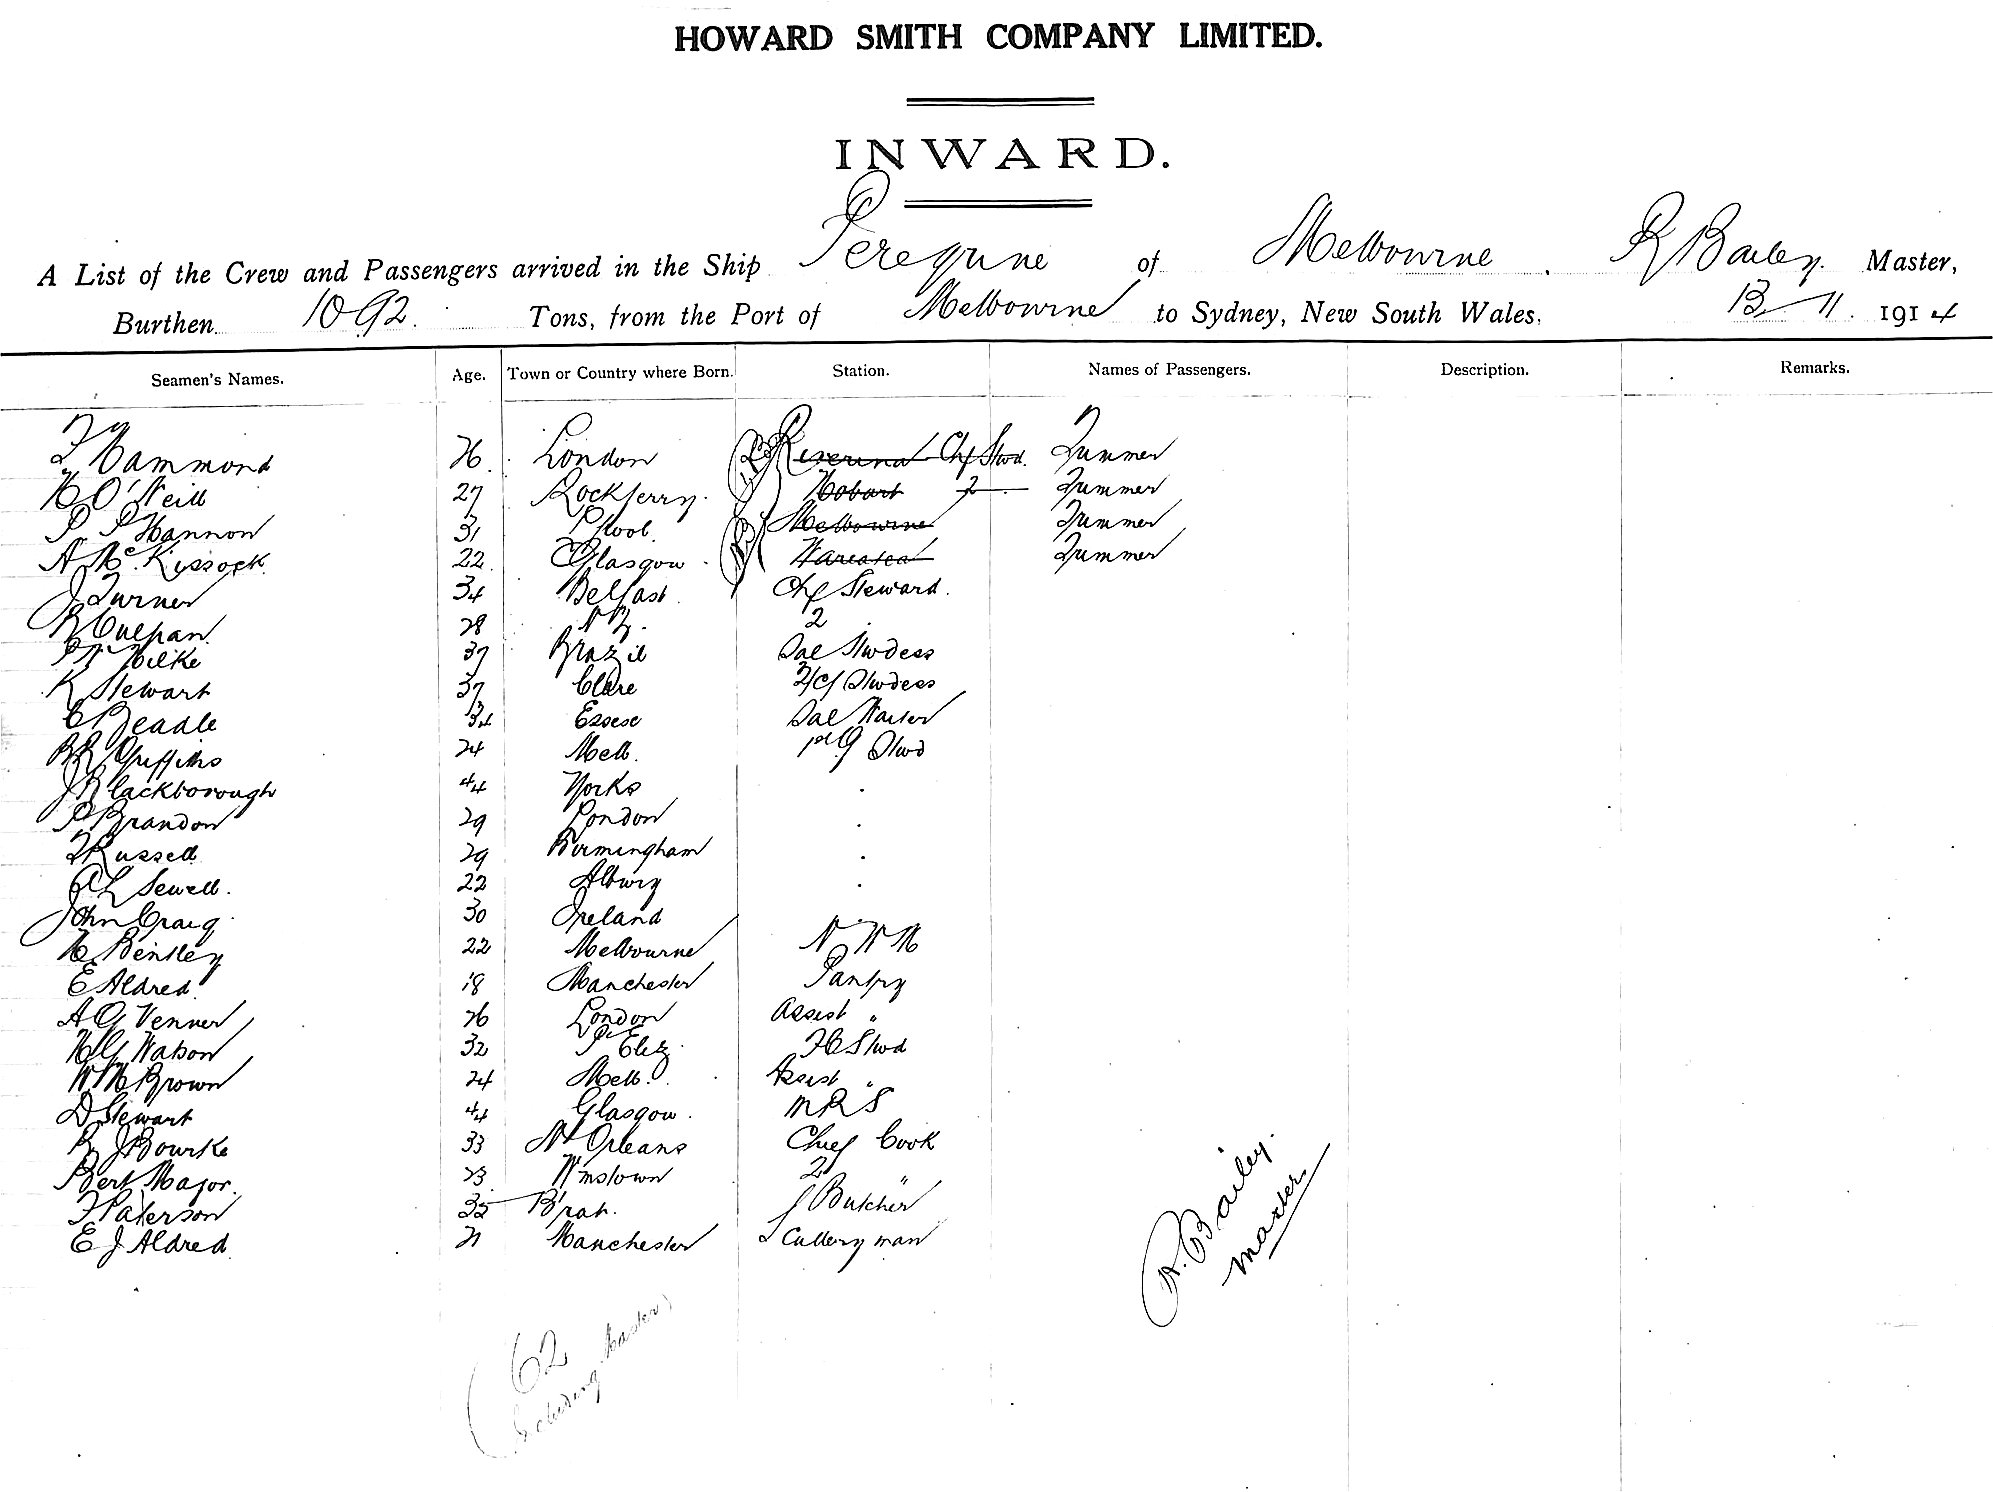 HOWARD SMITH COMPANY LIMITED.
INWARD.
A List of the Crew and Passengers arrived in the Ship Peregrine of Melbourne. R Bailey. Master,
Burthen 1092. Tons, from the Port of Melbourne to Sydney, New South Wales. 13-11. 1914
Seamen's Names. Age. Town or Country where Born. Station. Names of Passengers. Description. Remarks.
Hammond 26 London Riverina Chf Stwd. Trimmer
H O'Neill 27 Rockferry. Hobart Trimmer
P P Hannon 31 L'pool. Melbourne Trimmer
A Mc Kissock 22 Glasgow Trimmer
J Turner 34 Belfast Chf Steward.
R 28 N Z. 2
Wilke 37 Brazil Sal Stwdess
K Stewart 37 Clare 2/Cl Stwdess
C Beadle 34 Essex Sal Waiter
Griffiths 24 Melb. Stwd
J Blackborough 44 Yorks
P Brandon 29 London
Russell 29 Birmingham
Sewell. 22 Albury
John Craig 30 Ireland
H Bentley 22 Melbourne
E Aldred 18 Manchester Pantry
A G Venner 26 London Assist "
H G Watson 32 P Eliz. Stwd
W H Brown 24 Melb. Assist "
D Stewart 44 Glasgow. M R S
R J Bourke 33 N Orleans Chief Cook
Bert Major. 23 W'mstown 2 "
Paterson 35 Butcher
E J Aldred 21 Manchester Scullery man
R. Bailey.
Master
(62
Including Master)